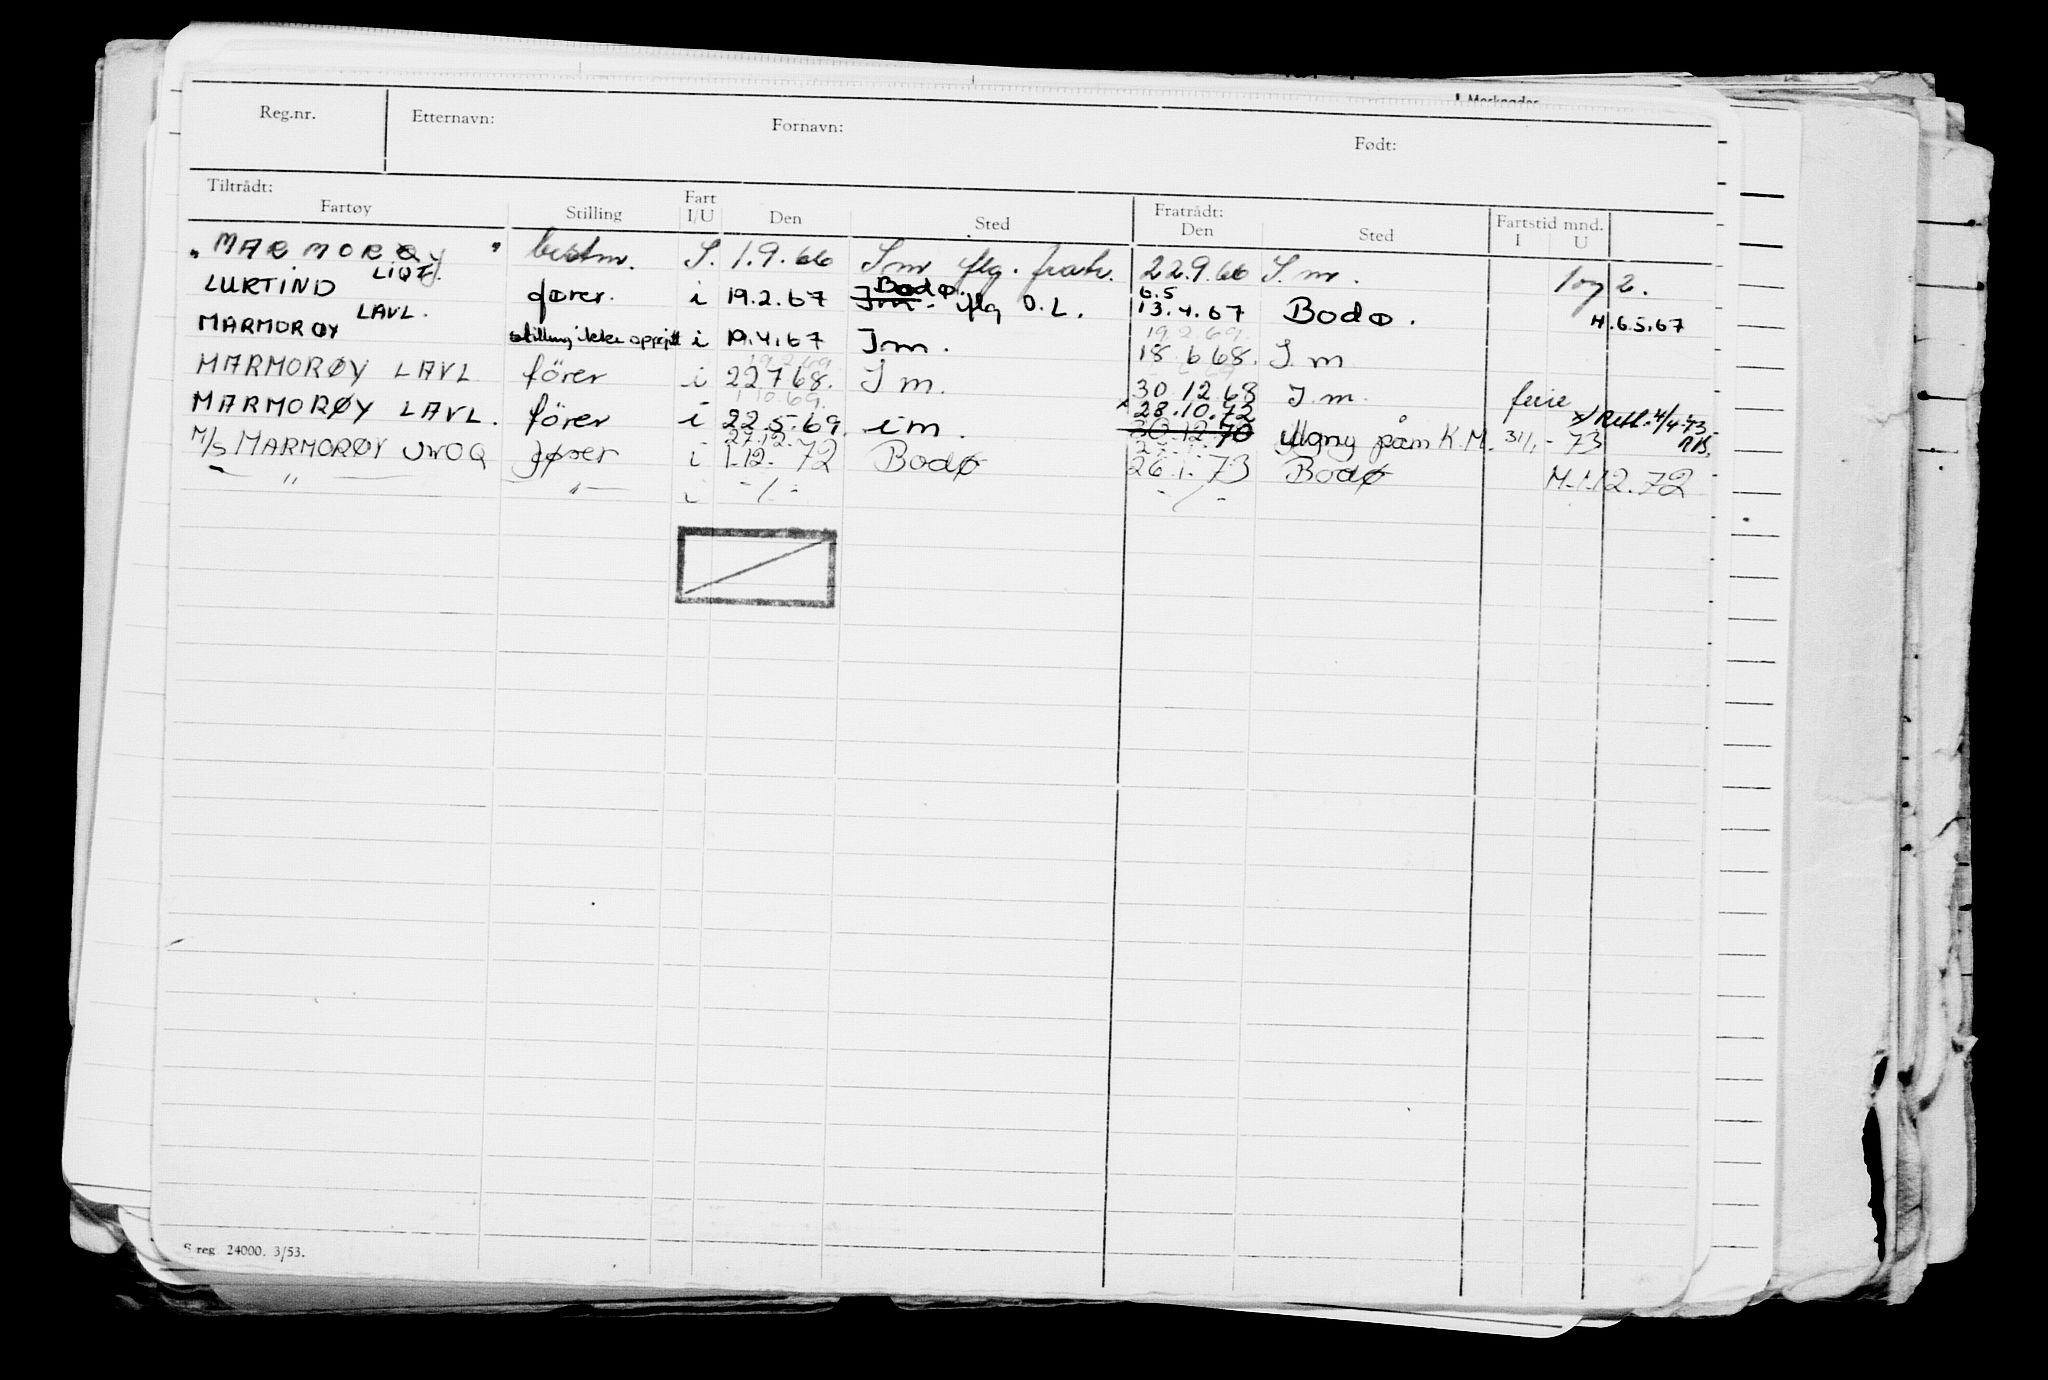 Merknader
Reg.nr. Etternavn: Fornavn: Født:
Tiltrådt: Fratrådt:
Fartøy Stilling Fart I/U Den Sted Den Sted Fartstid mnd. I U
"MARMORØY" bestm. I. 1.9.66 I m flg. fratr. 22.9.66 I. m. 1 og 2.
LURTIND fører. i 19.2.67 Im. Bodø. flg D.L. 6.5 13.4.67 Bodø. H.6.5.67
MARMORØY LAVL. stilling ikke oppgitt i 19.4.67 I.m. 18.6.68. I. m
MARMORØY LAVL förer i 22 7 68. I m. 30 12.68 I.m. ferie
MARMORØY LAVL. förer i 22.5.69. i m. x 28.10.72 30.12.70 påm K.M. 31/1 - 73 x) Rett. 4/4-73
M/S MARMORØY fører i 1.12. 72 Bodø 26.1. 73 Bodø M-1.12.72
— " — — " — i -/- -/-
S.reg. 24000. 3/53.